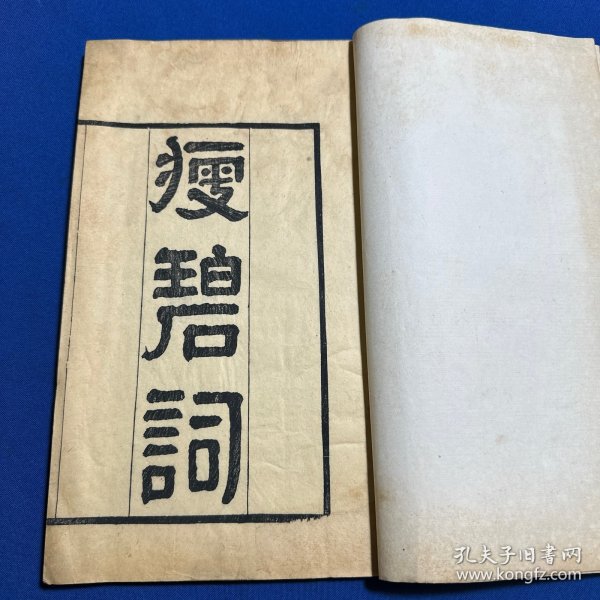 瘦碧詞
孔夫子旧書网
www.kongfz.com